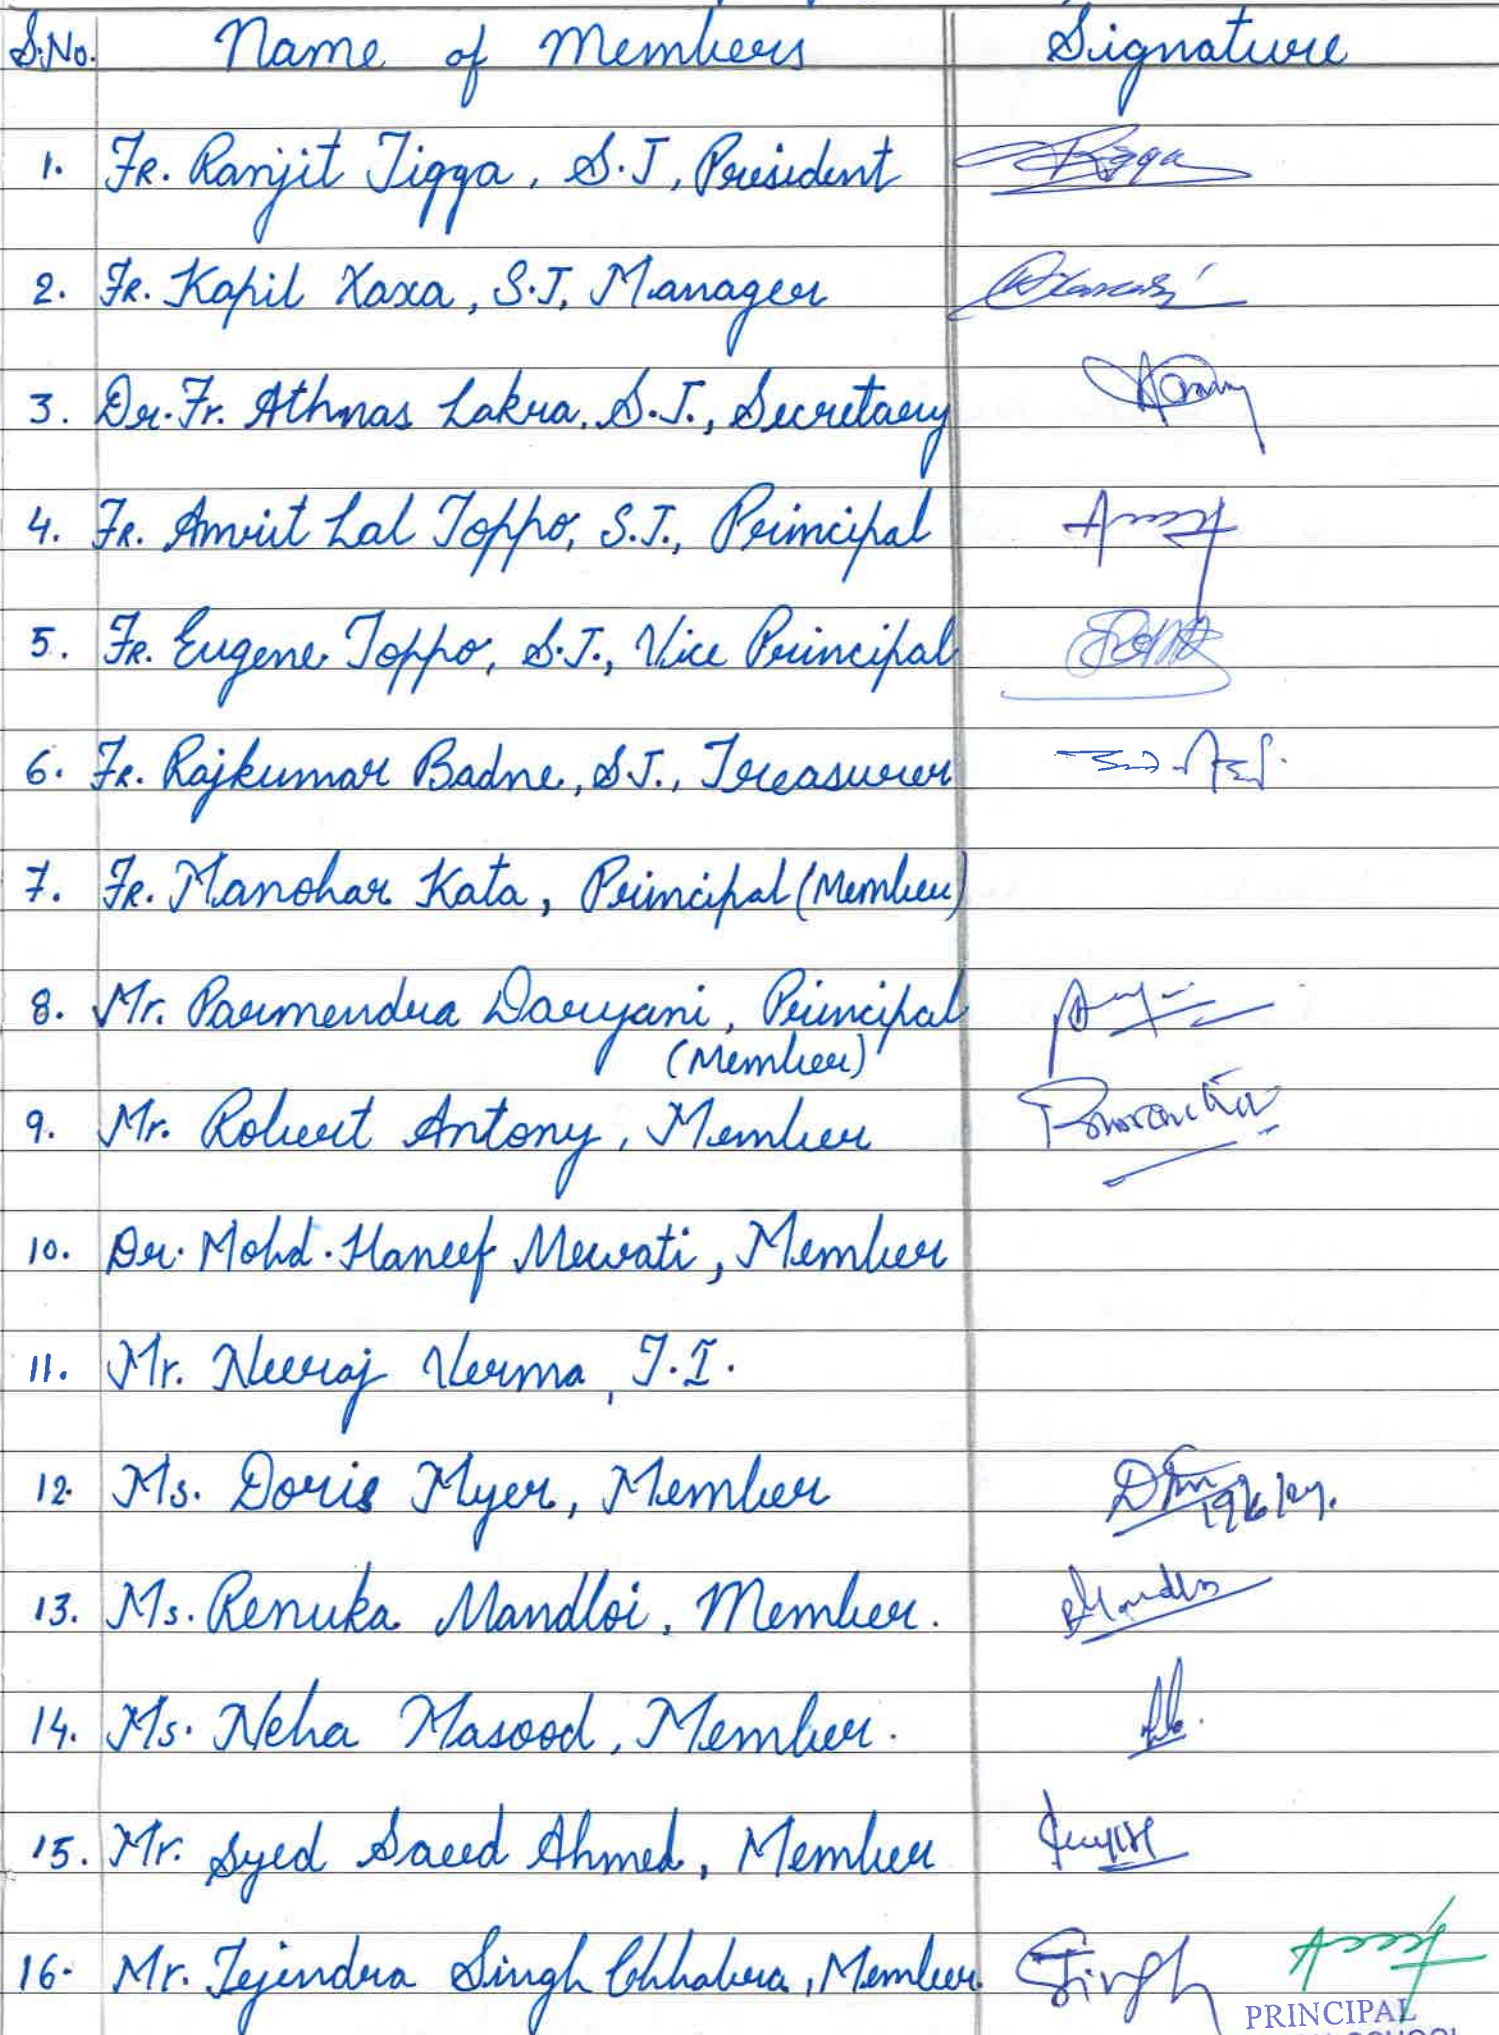 S.No. Name of Members Signature
1. FR. Ranjit Tigga, S.J, President
2. FR. Kapil Xaxa, S.J, Manager
3. Dr. Fr. Athnas Lakra, S.J., Secretary
4. FR. Amrit Lal Toppo, S.J., Principal
5. FR. Eugene Toppo, S.J., Vice Principal
6. FR. Rajkumar Badne, S.J., Treasurer
7. FR. Manohar Kata, Principal (Member)
8. Mr. Parmendra Daryani, Principal
(Member)
9. Mr. Robert Antony, Member
10. Dr. Mohd. Haneef Mewati, Member
11. Mr. Neeraj Verma, T.I.
12. Ms. Doris Myer, Member 19/6/24.
13. Ms. Renuka Mandloi, Member.
14. Ms. Neha Masood, Member.
15. Mr. Syed Saeed Ahmed, Member
16. Mr. Tejendra Singh Chhabra, Member Singh
PRINCIPAL